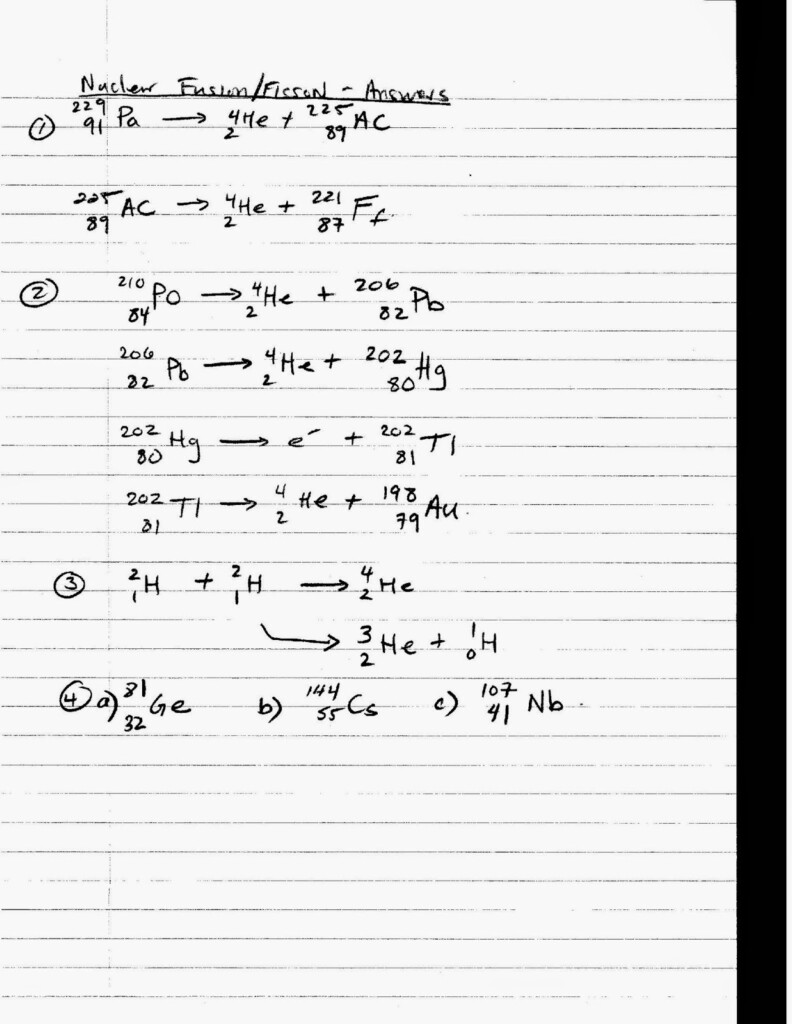 Nuclear Fusion/Fission - Answers
① ²²⁹₉₁Pa → ⁴₂He + ²²⁵₈₉AC
²²⁵₈₉AC → ⁴₂He + ²²¹₈₇Fr
② ²¹⁰₈₄PO → ⁴₂He + ²⁰⁶₈₂Pb
²⁰⁶₈₂Pb → ⁴₂He + ²⁰²₈₀Hg
²⁰²₈₀Hg → e⁻ + ²⁰²₈₁Tl
²⁰²₈₁Tl → ⁴₂He + ¹⁹⁸₇₉Au.
③ ²₁H + ²₁H → ⁴₂He
↳ ³₂He + ¹₀H
④ a) ⁸¹₃₂Ge b) ¹⁴⁴₅₅Cs c) ¹⁰⁷₄₁Nb.